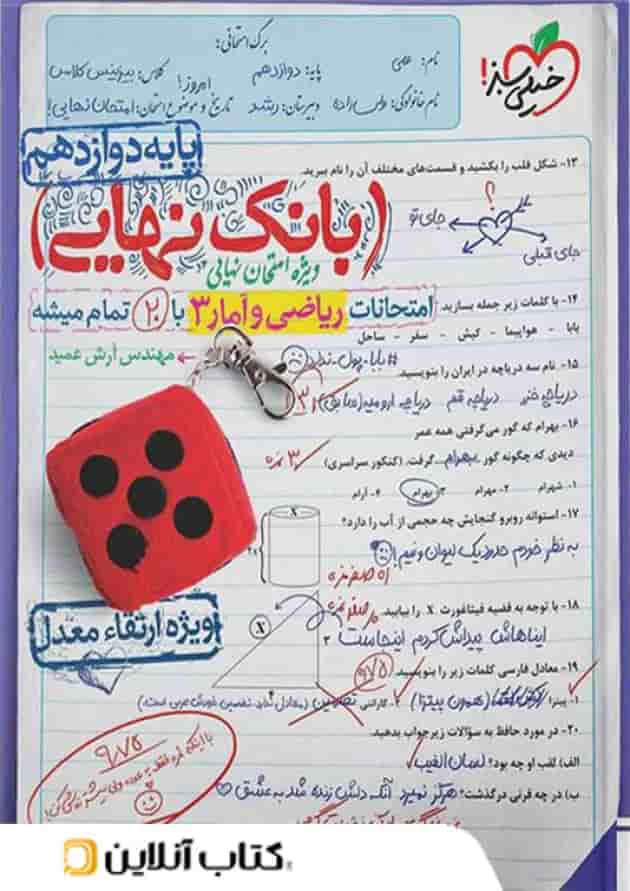 برگ امتحانی:
نام: عمی
پایه: دوازدهم
کلاس: بیزینس کلاس
امروز!
نام خانوادگی:
دبیرستان: رشد
تاریخ و موضوع امتحان: امتحان نهایی!
خیلی سبز!
پایه دوازدهم
۱۳- شکل قلب را بکشید و قسمت‌های مختلف آن را نام ببرید.
؟
جای تو
جای قبلی
(بانک نهایی)
ویژه امتحان نهایی
۱۴- با کلمات زیر جمله بسازید.
امتحانات ریاضی و آمار ۳ با ۲۰ تمام میشه
بابا - هواپیما - کیش - سفر - ساحل
#بابا_پول_نداره
مهندس آرش عمید
۱۵- نام سه دریاچه در ایران را بنویسید.
دریاچه خزر دریاچه قم دریاچه ارومیه (سابق)
۱۶- بهرام که گور می‌گرفتی همه عمر
دیدی که چگونه گور بهرام گرفت. (کنکور سراسری)
۳ نمره
۱- شهرام ۲- مهرام ۳- بهرام ۴- آرام
۱۷- استوانه روبرو گنجایش چه حجمی از آب را دارد؟
به نظر خودم حدود یک لیوان و نیم!
X
۱۸- با توجه به قضیه فیثاغورث X را بیابید.
X
۳
۴
ایناهاش پیداش کردم اینجاست
صفر نمره
ویژه ارتقاء معدل
۱۹- معادل فارسی کلمات زیر را بنویسید.
۹/۷۵
۱- پیتزا (همون پیتزا) ۲- گارانتی تضمین (معادل نداره تضمین خودش عربی است.)
۲۰- در مورد حافظ به سؤالات زیر جواب بدهید.
الف) لقب او چه بود؟ لسان الغیب
ب) در چه قرنی درگذشت؟ هرگز نمیرد آنکه دلش زنده شد به عشق
۹/۷۵
کتاب آنلاین